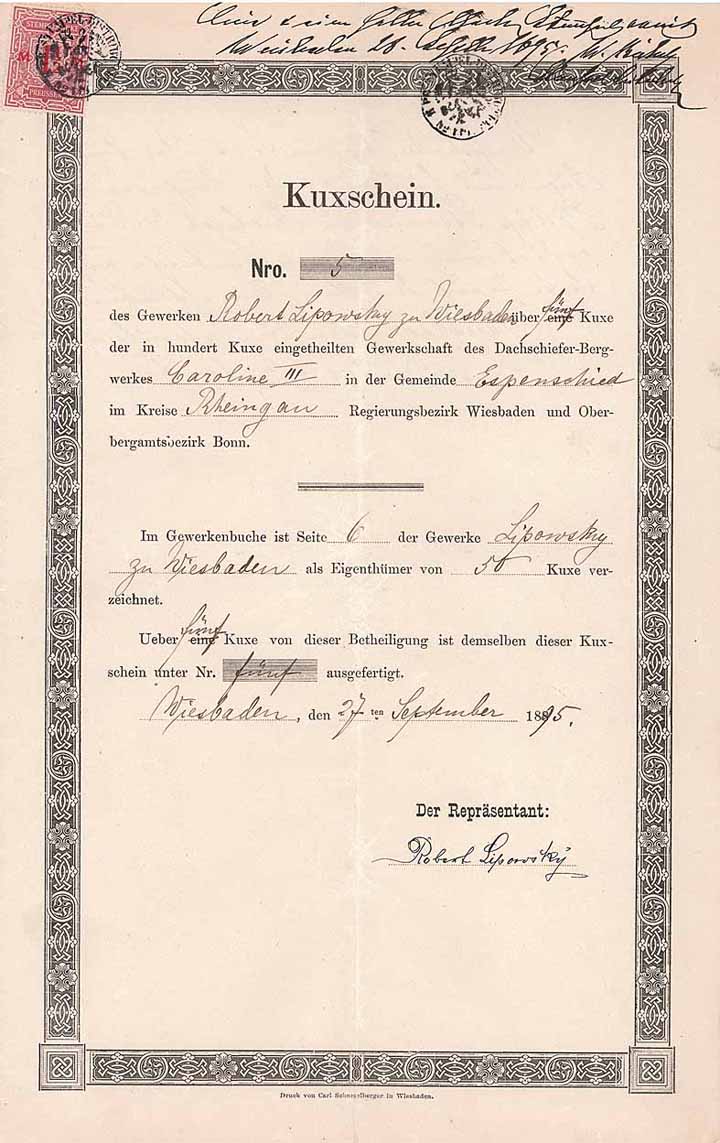 STEMPEL
PREUSSEN
Kuxschein.
Nro. 5
des Gewerken Robert Lipowsky zu Wiesbaden über eine fünf Kuxe
der in hundert Kuxe eingetheilten Gewerkschaft des Dachschiefer-Berg-
werkes Caroline III in der Gemeinde Espenschied
im Kreise Rheingau Regierungsbezirk Wiesbaden und Ober-
bergamtsbezirk Bonn.
Im Gewerkenbuche ist Seite 6 der Gewerke Lipowsky
zu Wiesbaden als Eigenthümer von 50 Kuxe ver-
zeichnet.
Ueber eine fünf Kuxe von dieser Betheiligung ist demselben dieser Kux-
schein unter Nr. fünf ausgefertigt.
Wiesbaden, den 27ten September 1895.
Der Repräsentant:
Robert Lipowsky
Druck von Carl Schnegelberger in Wiesbaden.